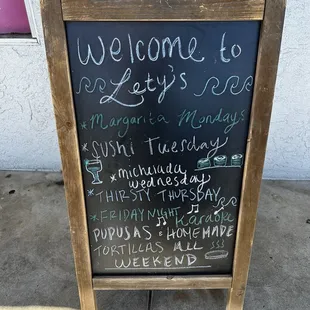 Welcome to
Lety's
*Margarita Mondays
*Sushi Tuesday
*michelada
wednesday
*THIRSTY THURSDAY
*FRIDAY NIGHT Karaoke
PUPUSAS & HOMEMADE
TORTILLAS ALL
WEEKEND